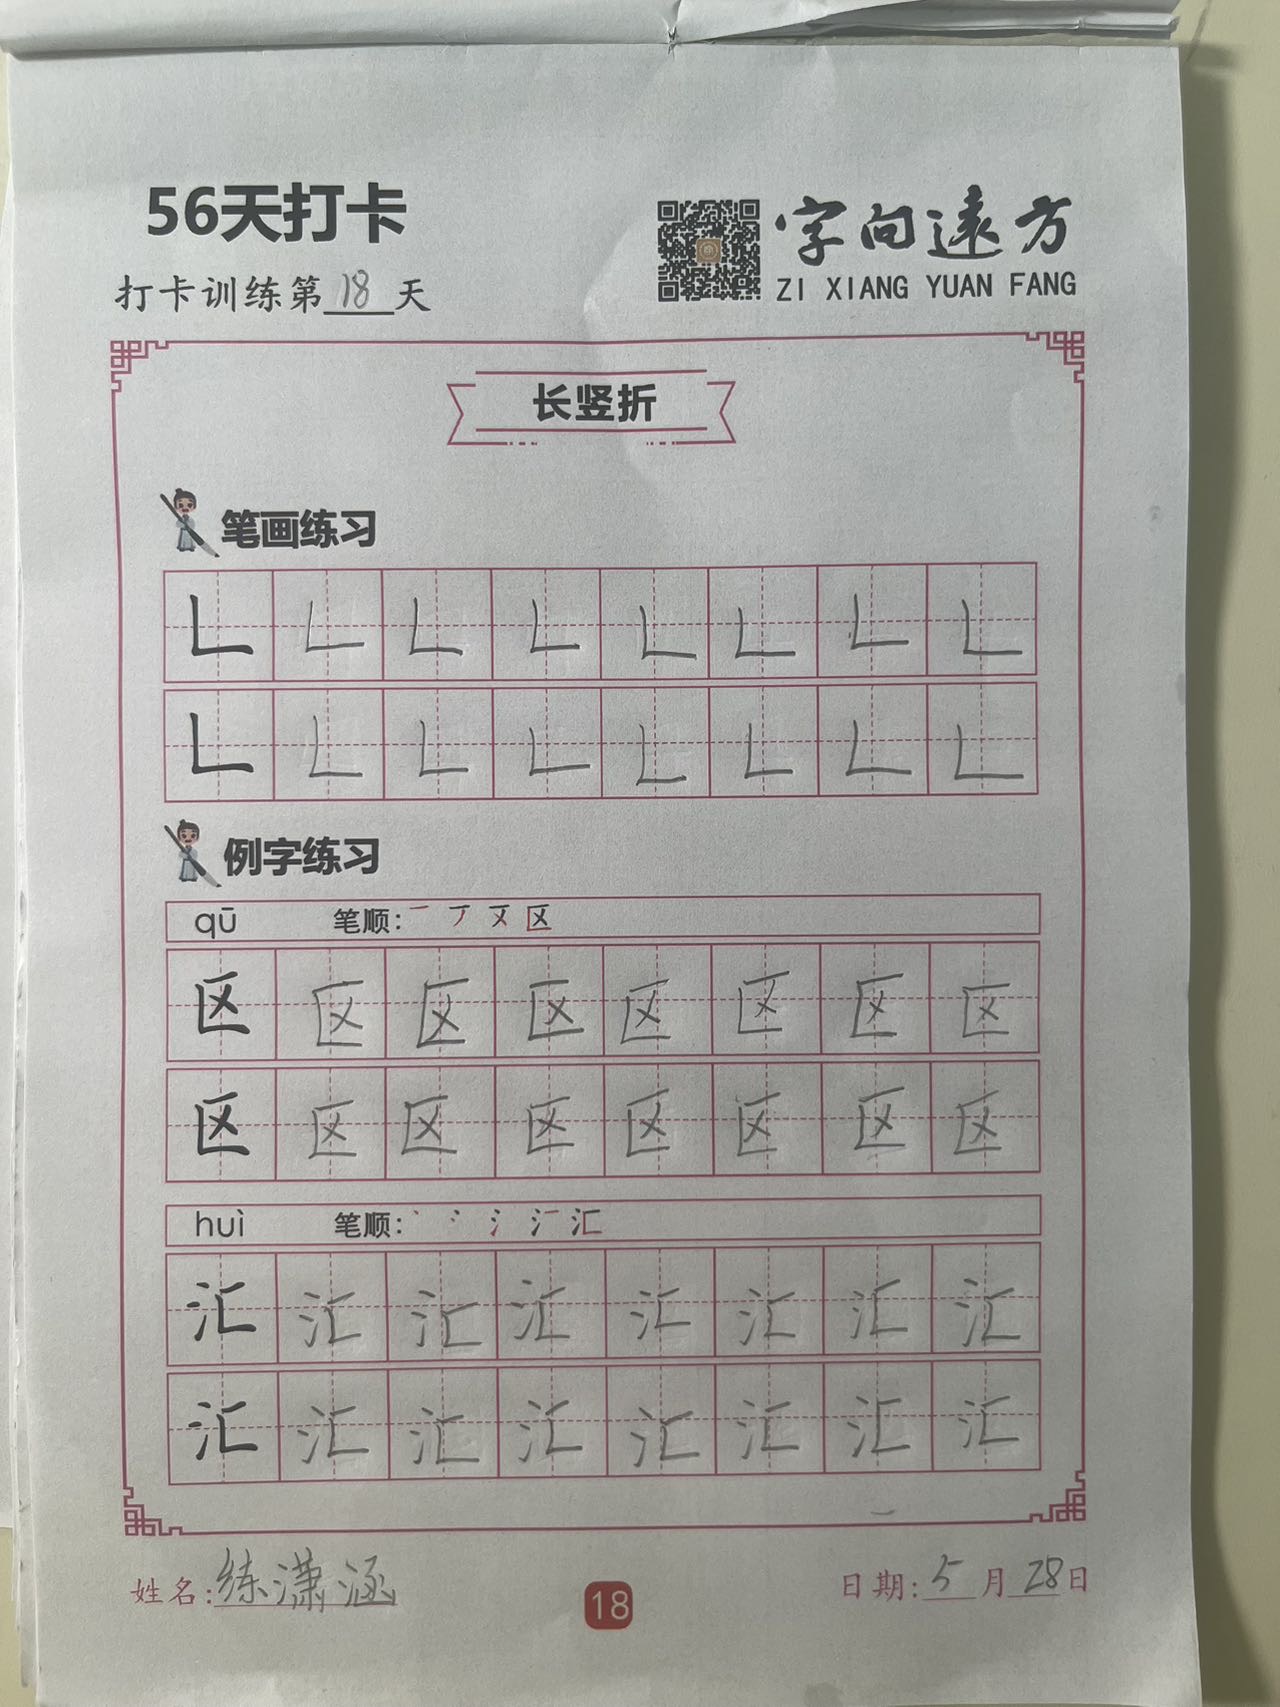 56天打卡
字向远方
ZI XIANG YUAN FANG
打卡训练第18天
长竖折
笔画练习
𠃊 𠃊 𠃊 𠃊 𠃊 𠃊 𠃊 𠃊
𠃊 𠃊 𠃊 𠃊 𠃊 𠃊 𠃊 𠃊
例字练习
qū 笔顺: 一 丆 区
区 区 区 区 区 区 区 区
区 区 区 区 区 区 区 区
huì 笔顺: 丶 冫 氵 汇
汇 汇 汇 汇 汇 汇 汇 汇
汇 汇 汇 汇 汇 汇 汇 汇
姓名:练潇涵
18
日期:5月28日